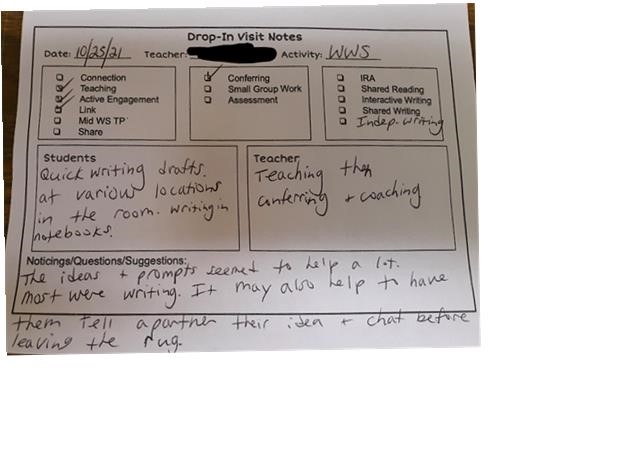 Drop-In Visit Notes
Date: 10/25/21 Teacher: Activity: WWS
Connection
Teaching
Active Engagement
Link
Mid WS TP
Share
Conferring
Small Group Work
Assessment
IRA
Shared Reading
Interactive Writing
Shared Writing
Indep. writing
Students
Quick writing drafts.
at various locations
in the room. writing in
notebooks.
Teacher
Teaching then
conferring + coaching
Noticings/Questions/Suggestions:
The ideas + prompts seemed to help a lot.
most were writing. It may also help to have
them tell a partner their idea + chat before
leaving the rug.